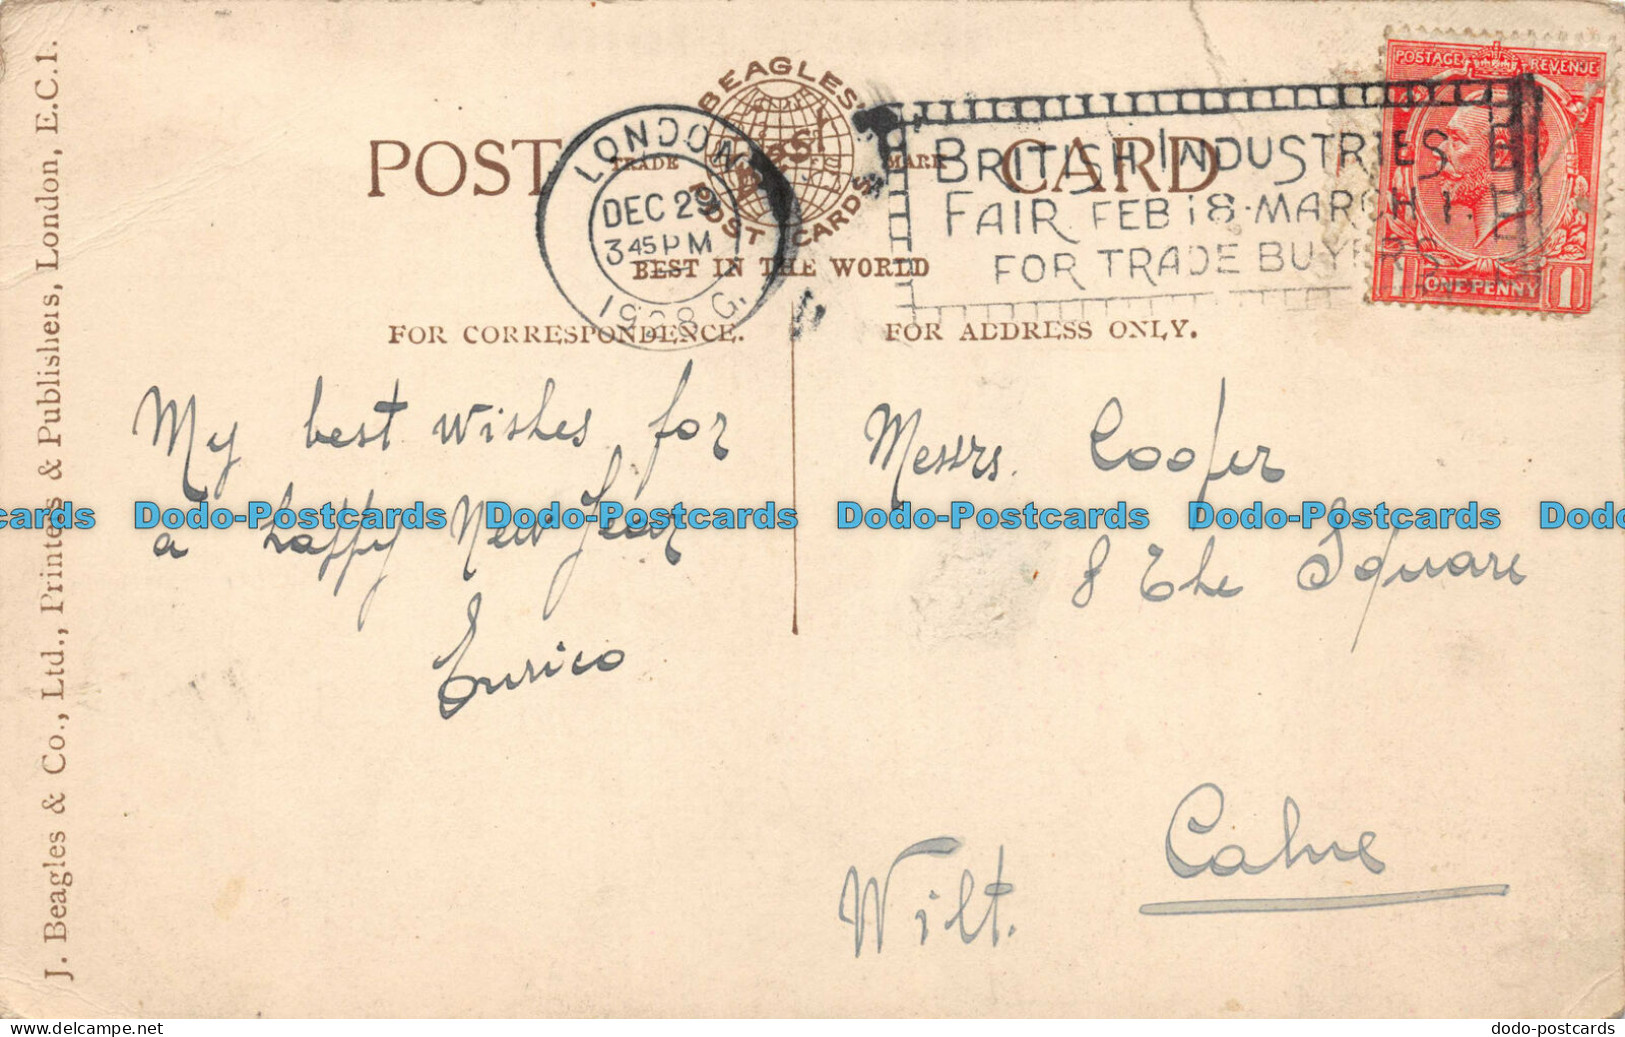 POST CARD
BEAGLES'
TRADE MARK
POST CARDS
BEST IN THE WORLD
LONDON
DEC 29
3 45 PM
1928
BRITISH INDUSTRIES
FAIR FEB 18-MARCH 1.
FOR TRADE BUYERS
POSTAGE REVENUE
1 ONE PENNY 1
FOR CORRESPONDENCE.
FOR ADDRESS ONLY.
My best wishes for
a happy New Year
Enrico
Messrs. Cooper
8 The Square
Calne
Wilt.
J. Beagles & Co., Ltd., Printers & Publishers, London, E.C.1.
cards Dodo-Postcards Dodo-Postcards Dodo-Postcards Dodo-Postcards Dodo
Copyright © 2024 For Delcampe International srl
dodo-postcards